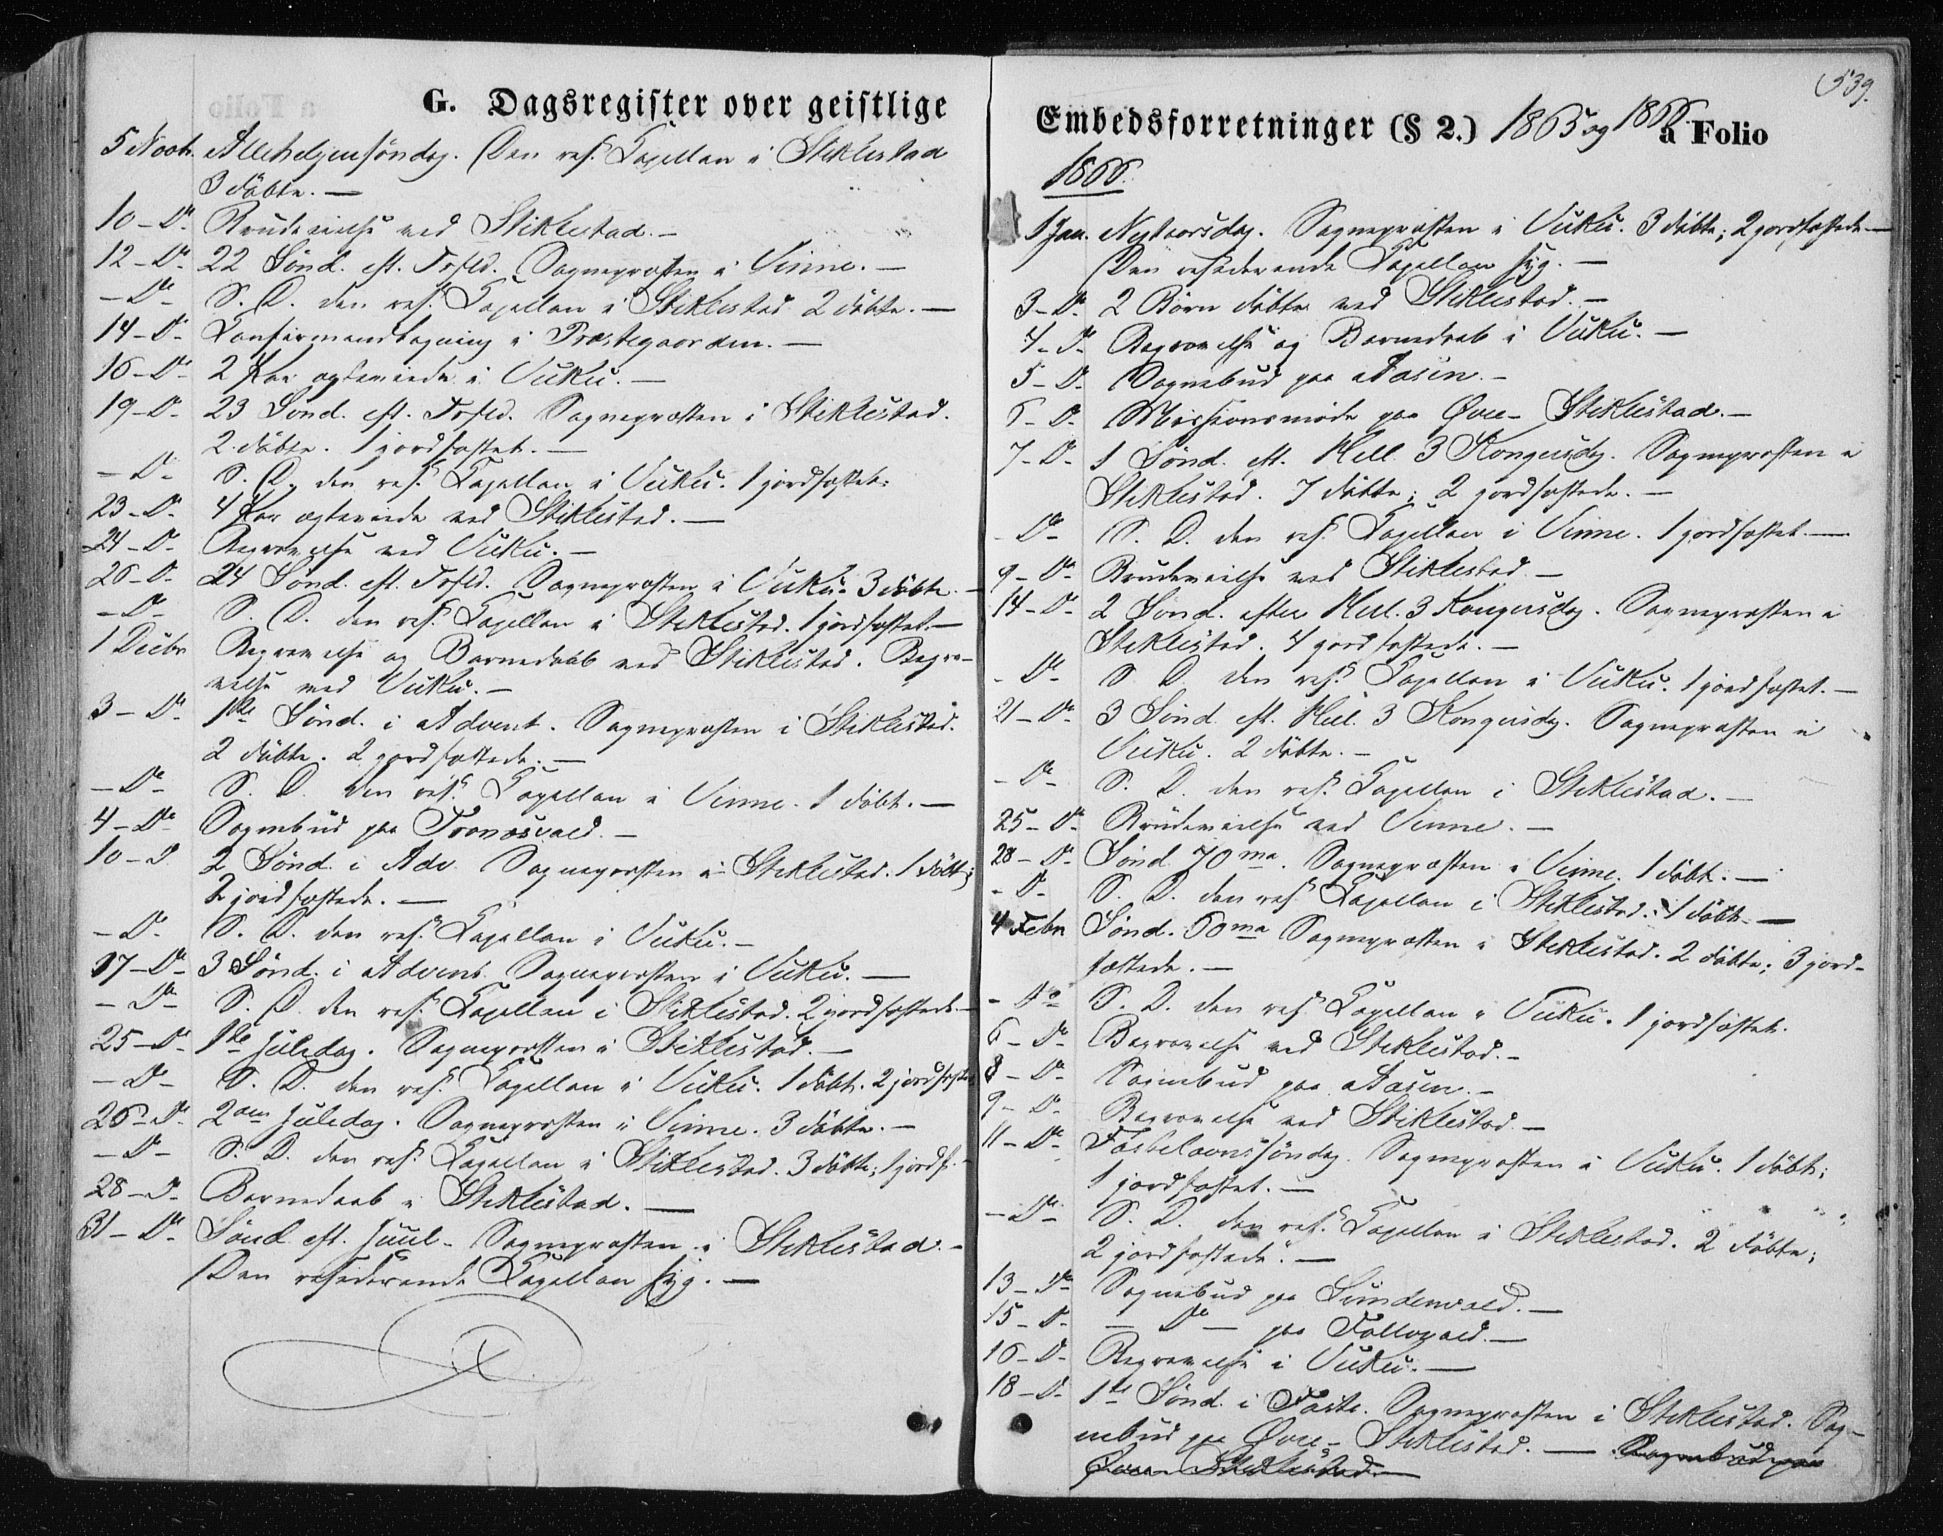 G. Dagsregister over geistlige
5 Novb. Allehelgensöndag. Den res. Capellan i Stiklestad
3 döbte. —
10 – Do Brudevielse ved Stiklestad. —
12 – Do 22 Sönd. eft. Trefld. Sognepræsten i Vinne. —
– Do – S. D. den res. Capellan i Stiklestad 2 döbte. —
14 – Do Confirmandtagning i Præstegaarden. —
16 – Do 2 Par ægteviede i Vuku. —
19 – D – 23 Sönd. eft. Trefld. Sognepræsten i Stiklestad.
2 döbte. 1 jordfæstet. —
– D – S. D. den res. Capellan i Vuku. 1 jordfæstet.
23 – D – 4 Par ægteviede ved Stiklestad. —
24 – D – Begravelse ved Vuku. —
26 – D – 24 Sönd. eft. Trefld. Sognepræsten i Vuku. 3 döbte. —
– Do S. D. den res. Capellan i Stiklestad. 1 jordfæstet. —
1 Decbr Begravelse og Barnedaab ved Stiklestad. Begra-
velse ved Vuku. —
3 – Do 1ste Sönd. i Advent. Sognepræsten i Stiklestad.
2 döbte. 2 jordfæstede. —
– Do – S. D. den res. Capellan i Vinne. 1 döbt. —
4 – Do Sognebud paa Tronæsvald. —
10 – D 2 Sönd. i Adv. Sognepræsten i Stiklestad. 1 döbt;
2 jordfæstede. —
– D – S. D. den res. Capellan i Vuku. —
17 – Do 3 Sönd. i Advent. Sognepræsten i Vuku. —
– Do – S. D. den res. Capellan i Stiklestad. 2 jordfæstede —
25 – D – 1ste Juledag. Sognepræsten i Stiklestad. —
– D – S. D. den res. Capellan i Vuku. 1 döbt. 2 jordfæstede
26 – Do 2den Juledag. Sognepræsten i Vinne. 3 döbte. —
– D – S. D. den res. Capellan i Stiklestad. 3 döbte; 1 jordf. —
28 – D – Barnedaab i Stiklestad. —
31 – Do Sönd eft. Juul – Sognepræsten i Stiklestad. –
Den residerende Capellan syg. —
539.
Embedsforretninger (§ 2.) 1865 og 1866 a Folio
1866.
1 Jan. Nytaarsdag. Sognepræsten i Vuku. 3 döbte; 2 jordfæstede —
Den residerende Capellan syg. —
3 – D – 2 Börn döbte ved Stiklestad. —
4 – D – Begravelse og Barnedaab i Vuku. —
5 – D – Sognebud paa Aasen. –
6 – D – Missionsmöde paa Övre – Stiklestad. —
7 – D – 1 Sönd. eft. Hell. 3 Kongersdag. Sognepræsten i
Stiklestad. 7 döbte; 2 jordfæstede. —
– Do – S. D. den res. Capellan i Vinne. 1 jordfæstet. —
9 – Do Brudevielse ved Stiklestad. —
14 – Do 2 Sönd. efter Hell. 3 Kongersdag. Sognepræsten i
Stiklestad. 4 jordfæstede. —
– Do S. D. den res. Capellan i Vuku. 1 jordfæstet. —
21 – Do 3 Sönd. eft. Hell. 3 Kongersdag. Sognepræsten i
Vuku. 2 döbte. —
– Do – S. D. den res. Capellan i Stiklestad. —
25 – Do Brudevielse ved Vinne. —
28 – Do Sönd. 70ma. Sognepræsten i Vinne. 1 döbt. —
– D – S. D. den res. Capellan i Stiklestad. 1 döbt. —
4 Febr Sönd. 60ma Sognepræsten i Stiklestad. 2 döbte; 3 jord-
fæstede. —
– Do S. D. den res Capellan i Vuku. 1 jordfæstet.
6 – Do Begravelse ved Stiklestad. –
8 – D – Sognebud paa Aasen. –
9 – D – Begravelse ved Stiklestad. —
11 – Do Fastelavnssöndag. Sognepræsten i Vuku. 1 döbt;
1 jordfæstet. —
– Do – S. D. den res. Capellan i Stiklestad. 2 döbte;
2 jordfæstede. —
13 – Do Sognebud paa Sundenvald. —
15 – D – — Do — paa Vald. —
16 – D – Begravelse i Vuku. —
18 – D – 1ste Sönd. i Faste. Sognepræsten i Stiklestad. Sog-
nebud paa Övre – Stiklestad. — Sognebud paa
Övre Stiklestad. —